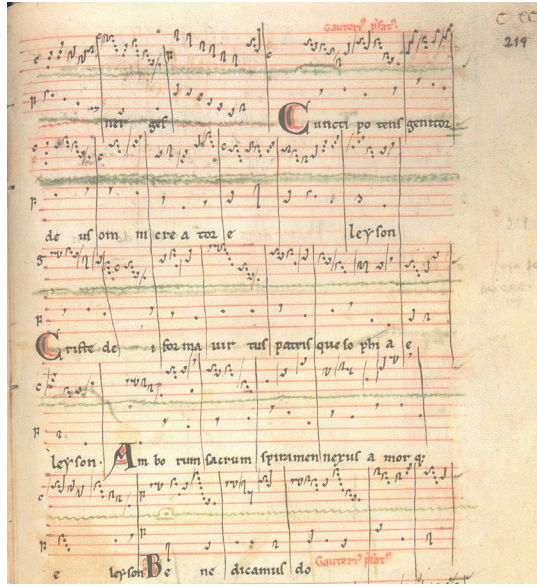 Gauteri' p̄fat'
219
ne ges Cuncti po tens genitor
de us om ni cre a tor e ley son
Criste de i for ma vir tus patris que so phi a e
ley son. Am bo rum sacrum spiramen nexus a mor q;
e ley son Be ne dicamus do
Gauteri' p̄fat'